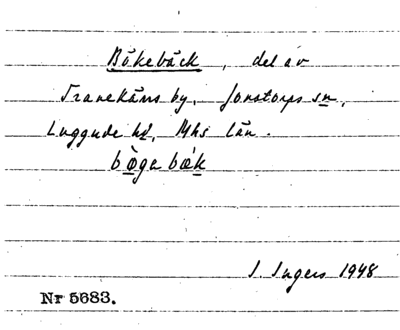 Bökebäck, del av
Tranekärrs by, Jonstorps sn,
Luggude hd, Mhs län.
bø̀ga bæ̀k
I. Ingers 1948
Nr 5683.